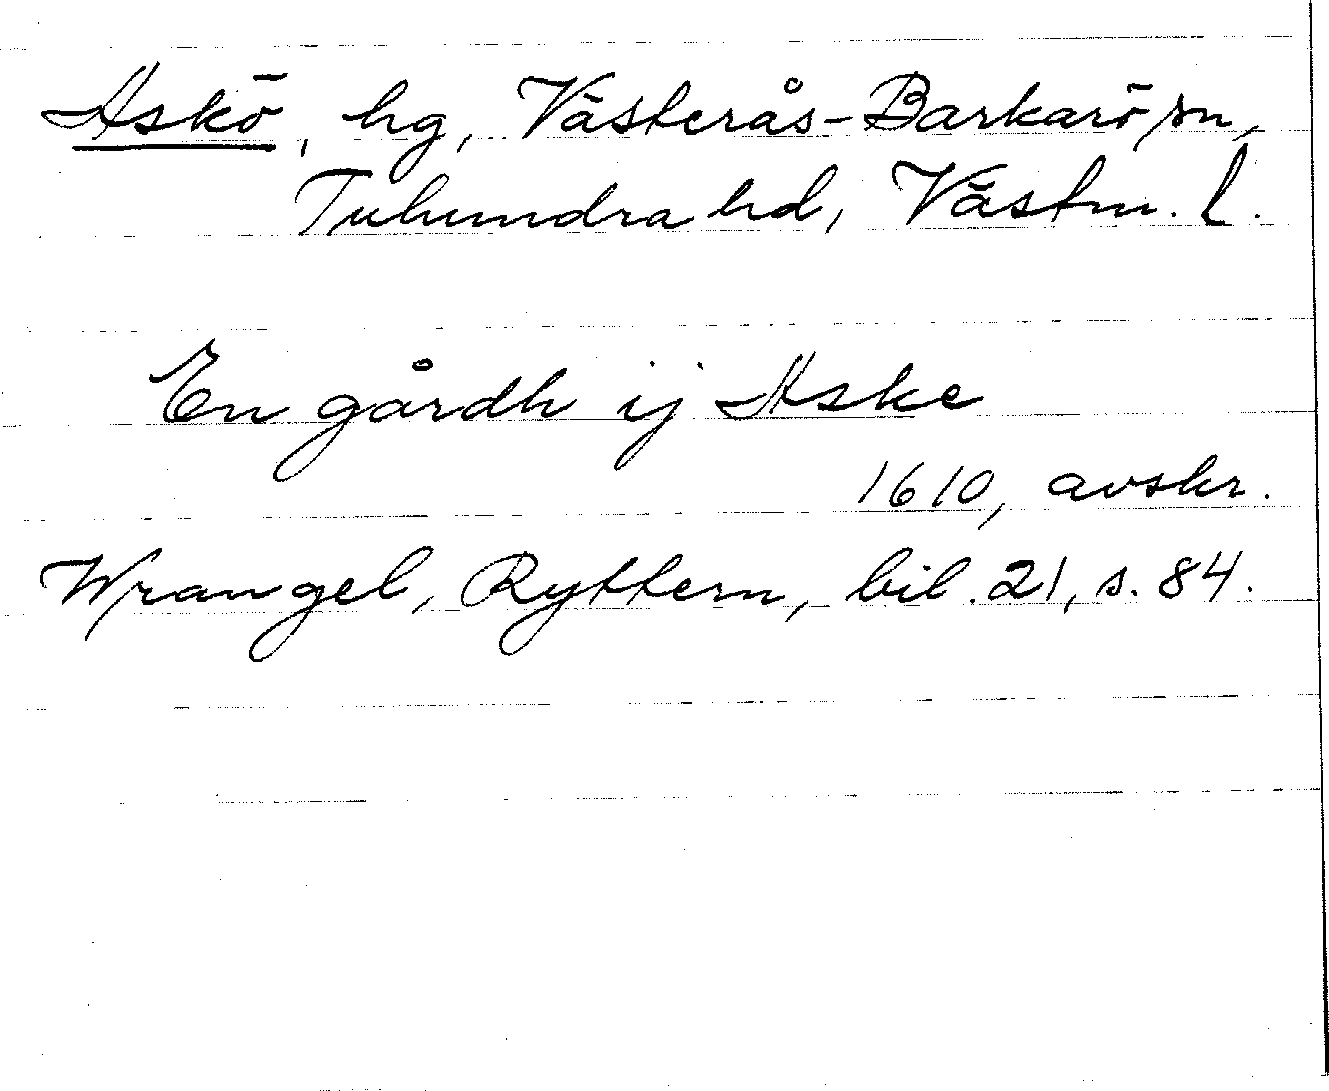 Askö, hg, Västerås-Barkarö sn,
Tuhundra hd, Västm. l.
En gårdh ij Aske
1610, avskr.
Wrangel, Ryttern, bil. 21, s. 84.